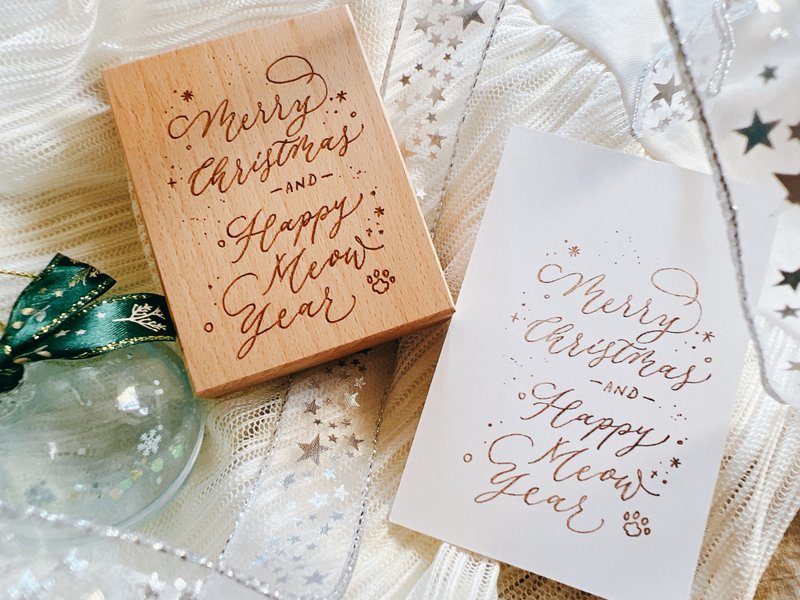 Merry
Christmas
-AND-
Happy
Meow
Year
Merry
Christmas
-AND-
Happy
Meow
Year